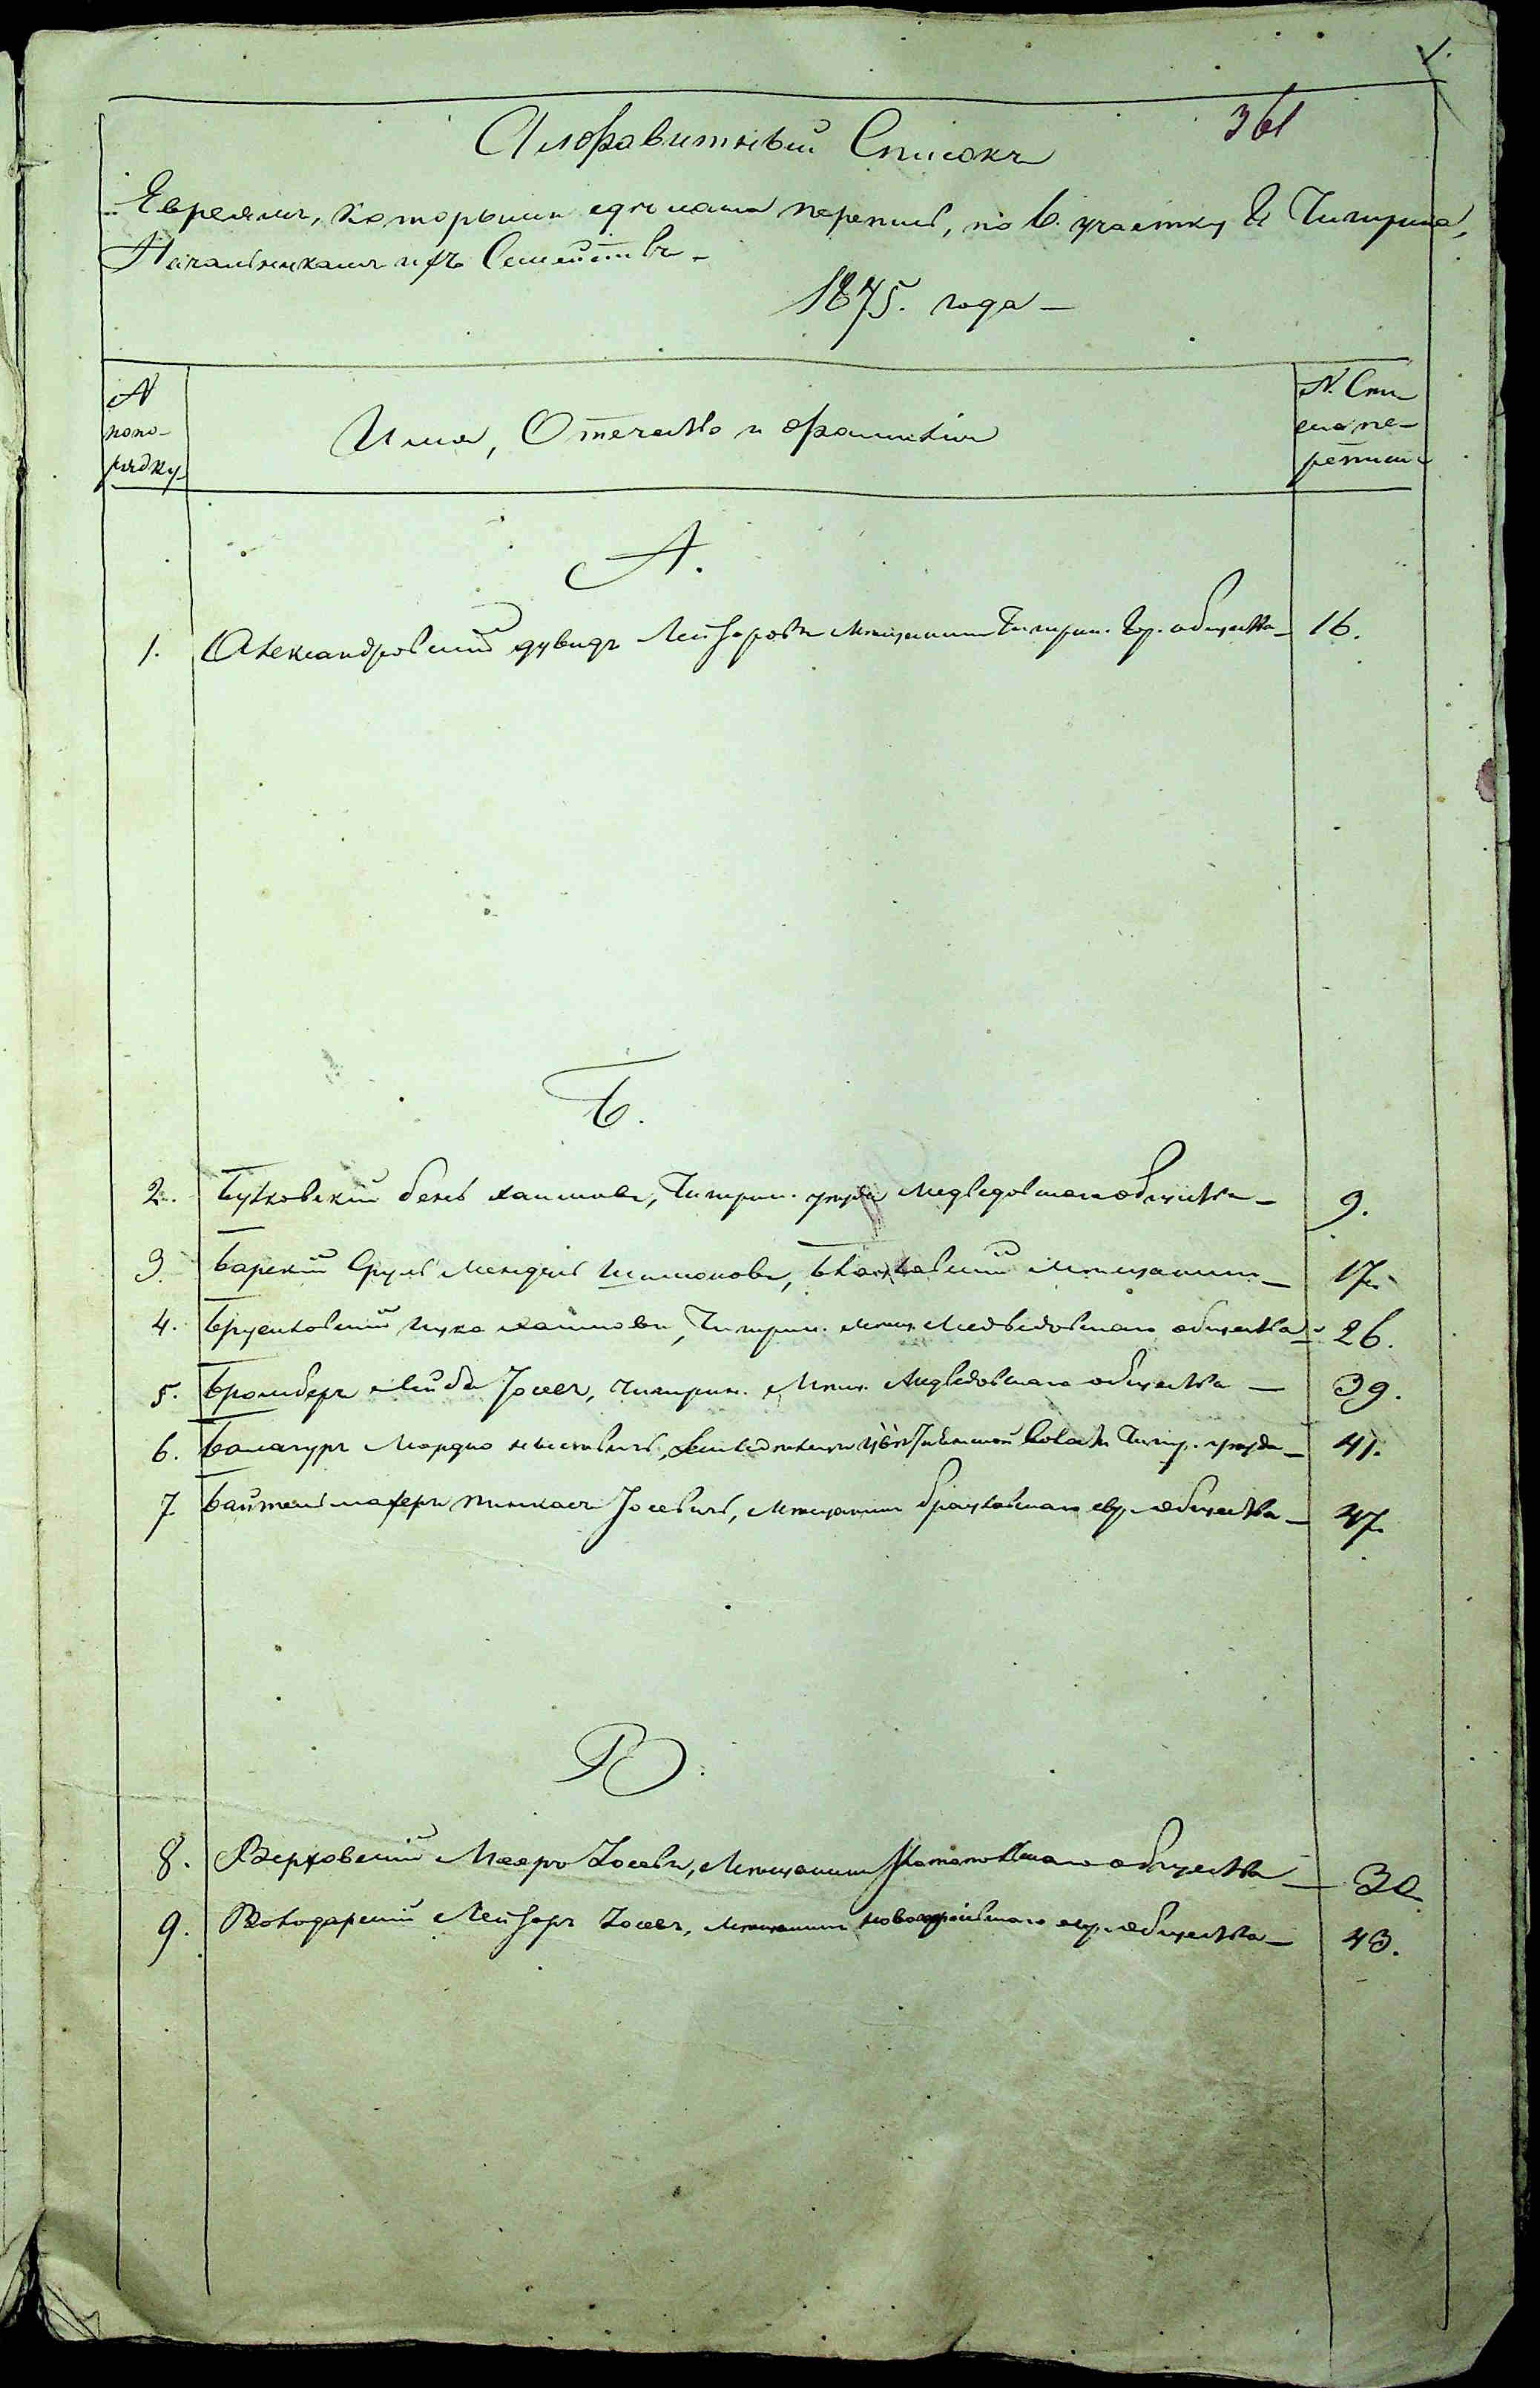 361
Алфавитный Списокъ
Евреямъ, которымъ сдѣлана перепись, по 6. участку г. Чигирина,
Начальникамъ ихъ Семействъ
1875. года —
№ по порядку
Имя, Отчество и фамилія
№ Списка переписи
А.
1. Александровскій Дувидъ Лейзеровъ Мѣщанинъ Чигирин. общества — 16.
Б.
2. Бутковскій Бень Хаимовъ, Чигирин. уѣзда Медведовскаго общества — 9.
3. Барскій Сруль Мендель Шимоновъ, мѣщанинъ — 17.
4. Бруслковскій Ицко Хаимовъ, Чигирин. мѣщ. Медвѣдовскаго общества — 26.
5. Бромберг Лейба Іосевъ, Чигирин. Мѣщ. Медвѣдовскаго общества — 39.
6. Балагуръ Мордко Чигир. уѣзда — 41.
7. Байтельмахеръ Пинхасъ Іосевичъ, Мѣщанинъ Брацлавскаго евр. общества — 47.
В.
8. Верховскій Мееръ Іосевъ, Мѣщанинъ общества — 30
9. Володарскій Лейзеръ Іосевъ, мѣщанинъ евр. общества — 43.